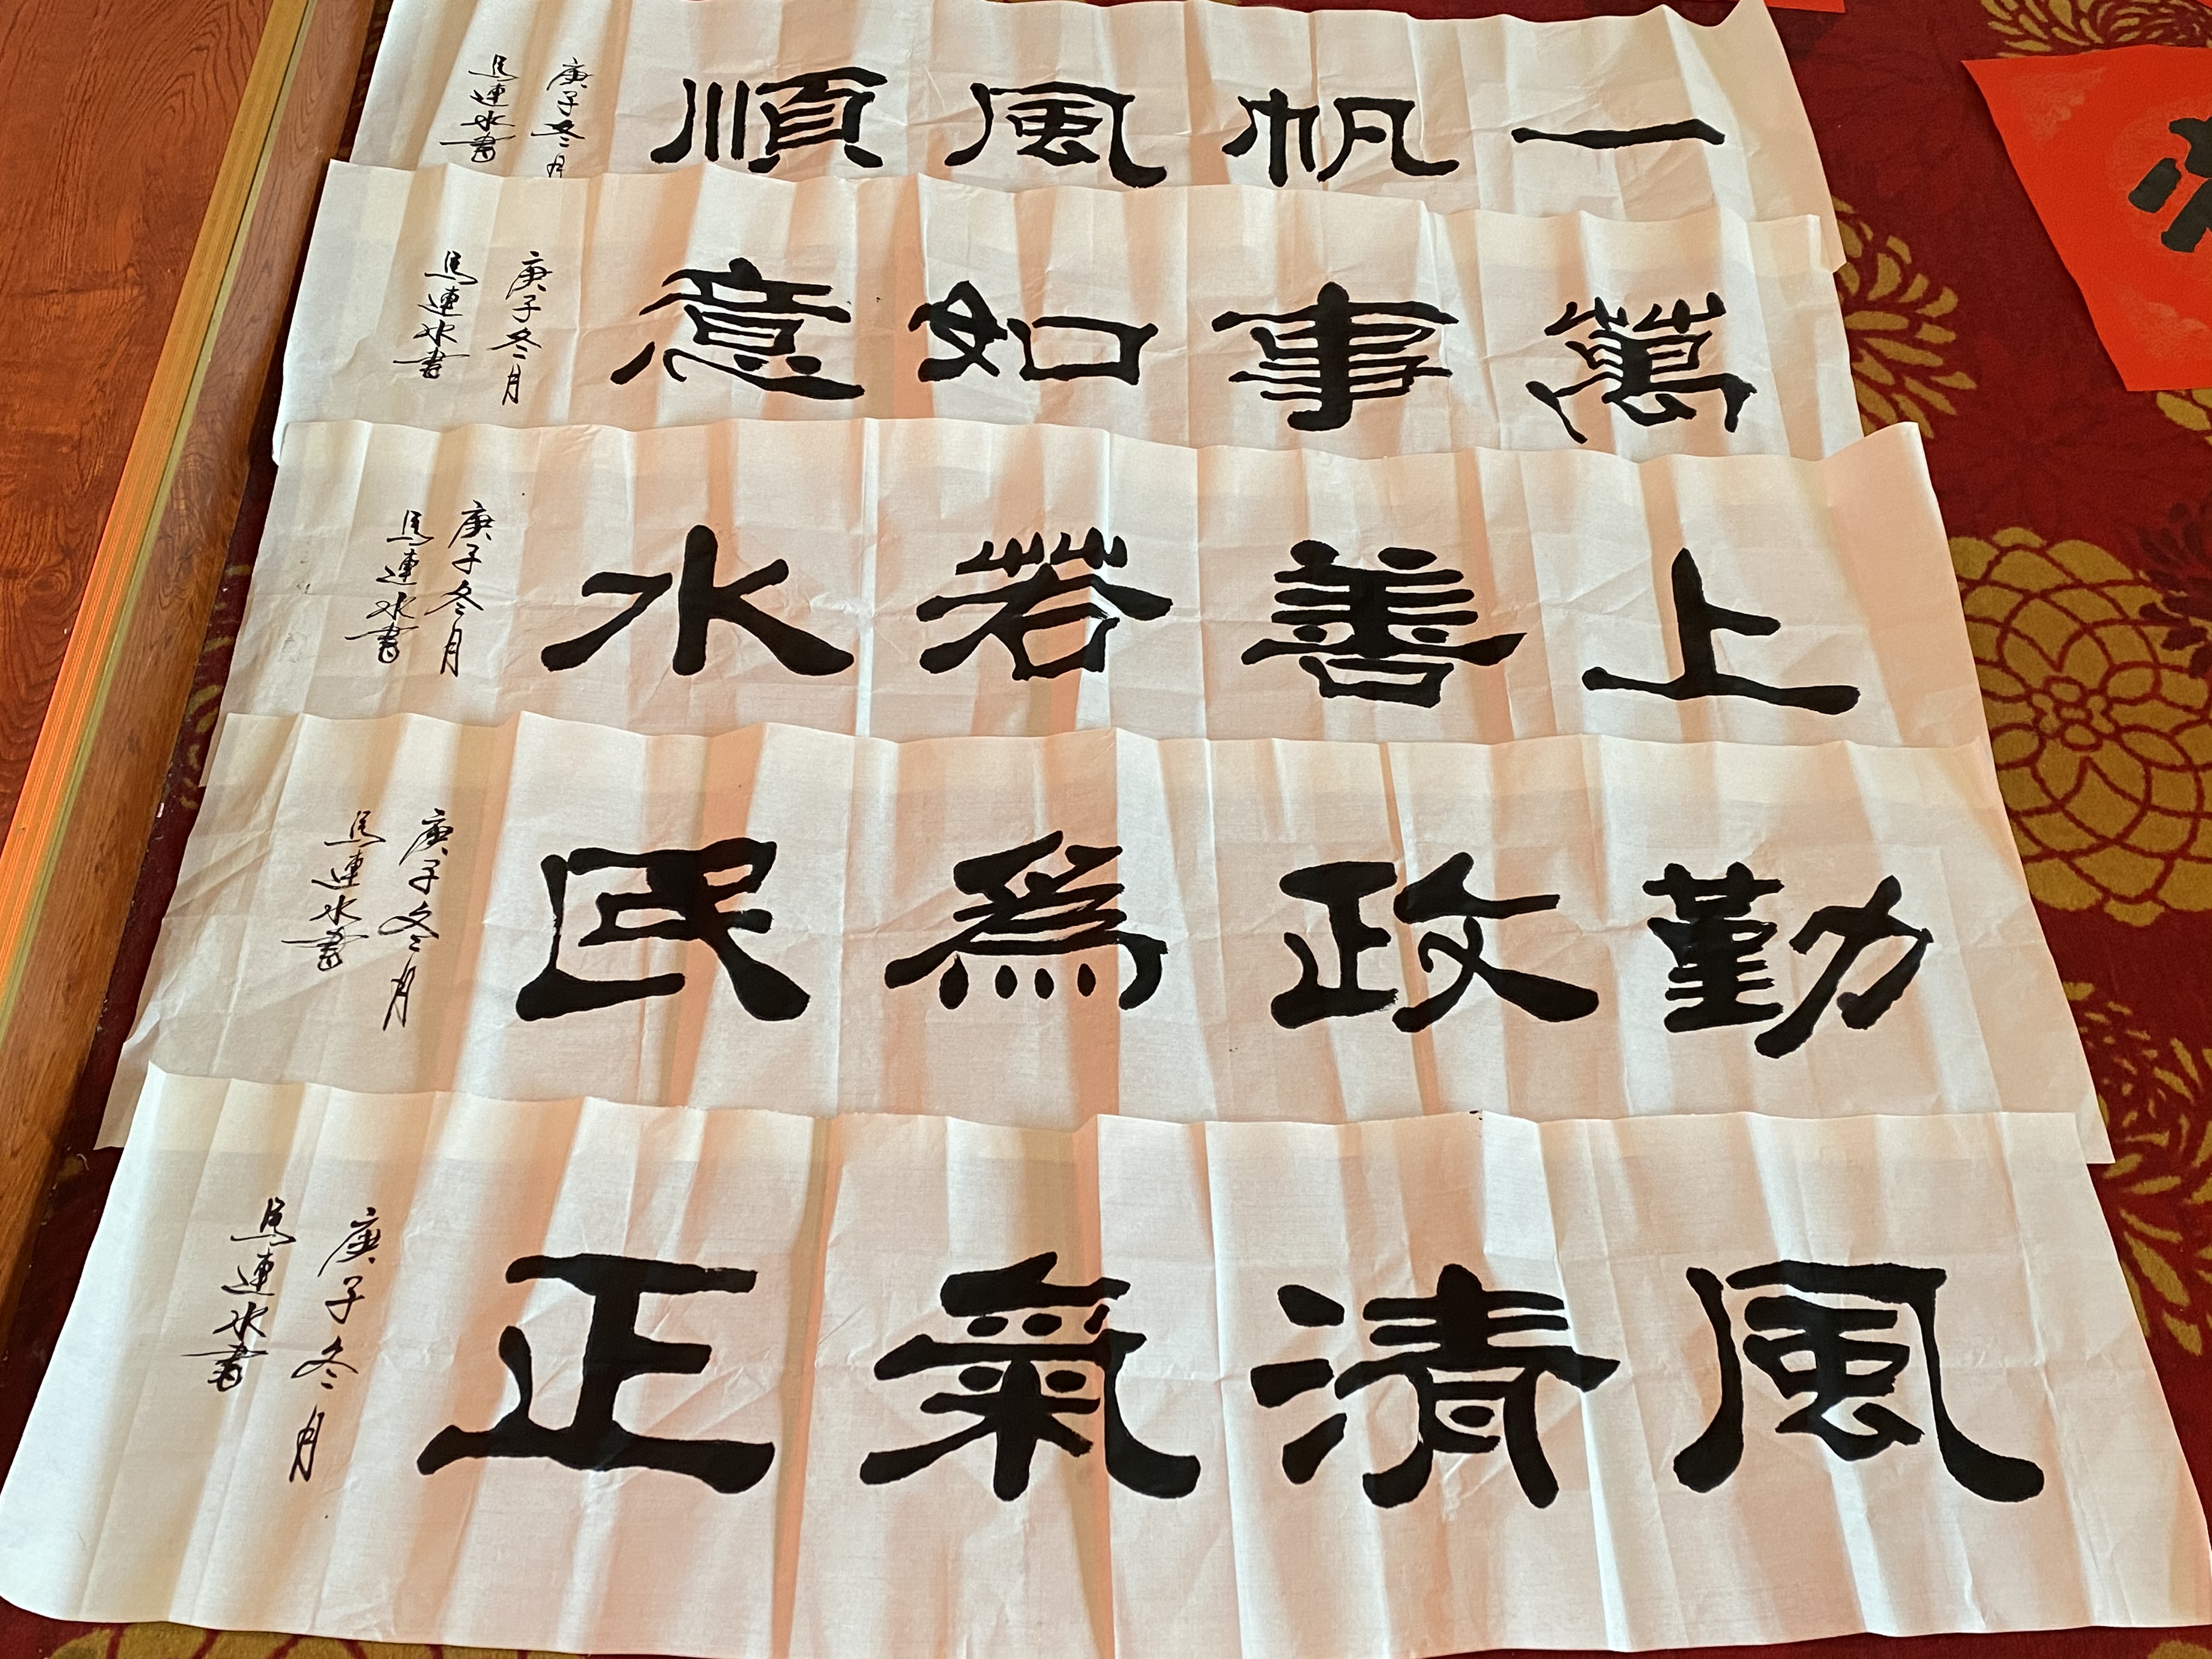 一帆風順
庚子冬月
馬連水書
萬事如意
庚子冬月
馬連水書
上善若水
庚子冬月
馬連水書
勤政爲民
庚子冬月
馬連水書
風清氣正
庚子冬月
馬連水書